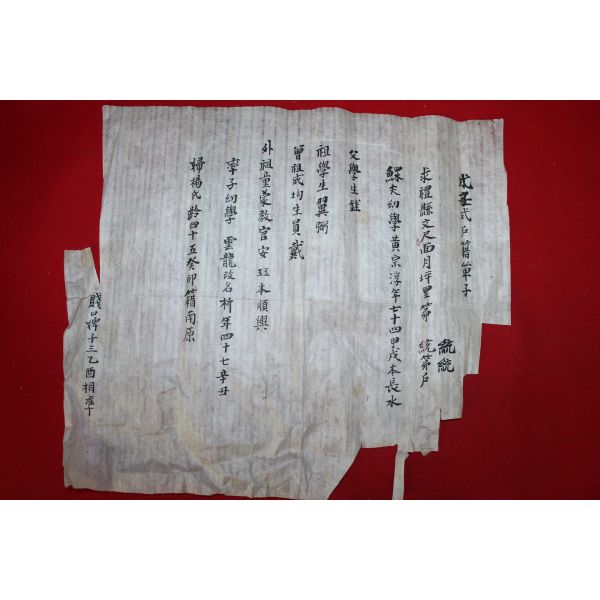 戊子式戶籍單子
求禮縣文尺面月坪里第 統 統第戶
統統
鰥夫幼學黃宗淳年七十四甲戌本長水
父學生
祖學生翼弼
曾祖成均生員戴
外祖童蒙教官安珏本順興
率子幼學雲龍改名 年四十七辛丑
婦楊氏齡四十五癸卯籍南原
賤口婢千三乙酉相准